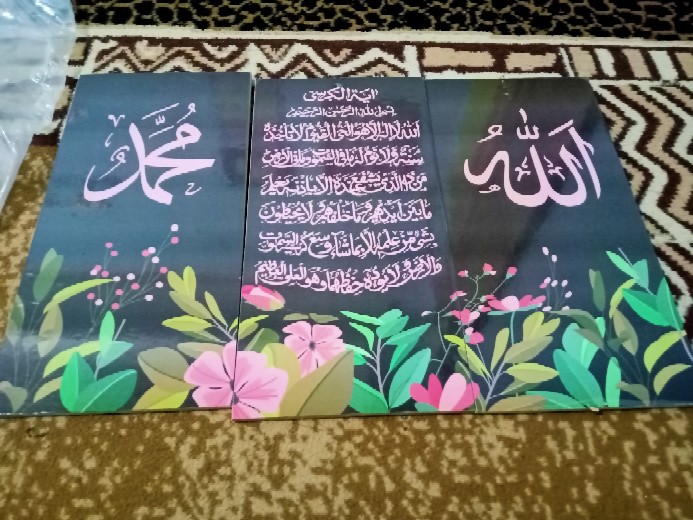 الله
آية الكرسي
بسم الله الرحمن الرحيم
الله لا إله إلا هو الحي القيوم لا تأخذه
سنة ولا نوم له ما في السموات وما في الأرض
من ذا الذي يشفع عنده إلا بإذنه يعلم
ما بين أيديهم وما خلفهم ولا يحيطون
بشيء من علمه إلا بما شاء وسع كرسيه السموات
والأرض ولا يؤده حفظهما وهو العلي العظيم
محمد